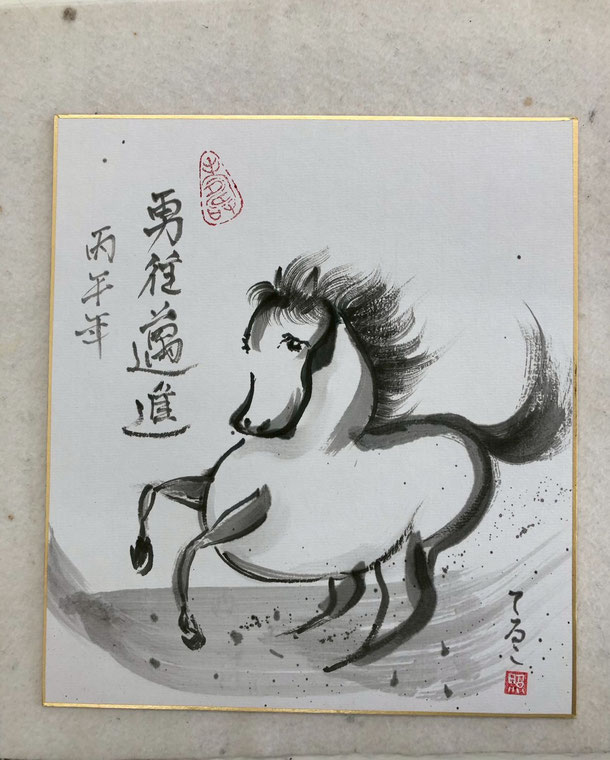 勇往邁進
丙午年
てるこ
照